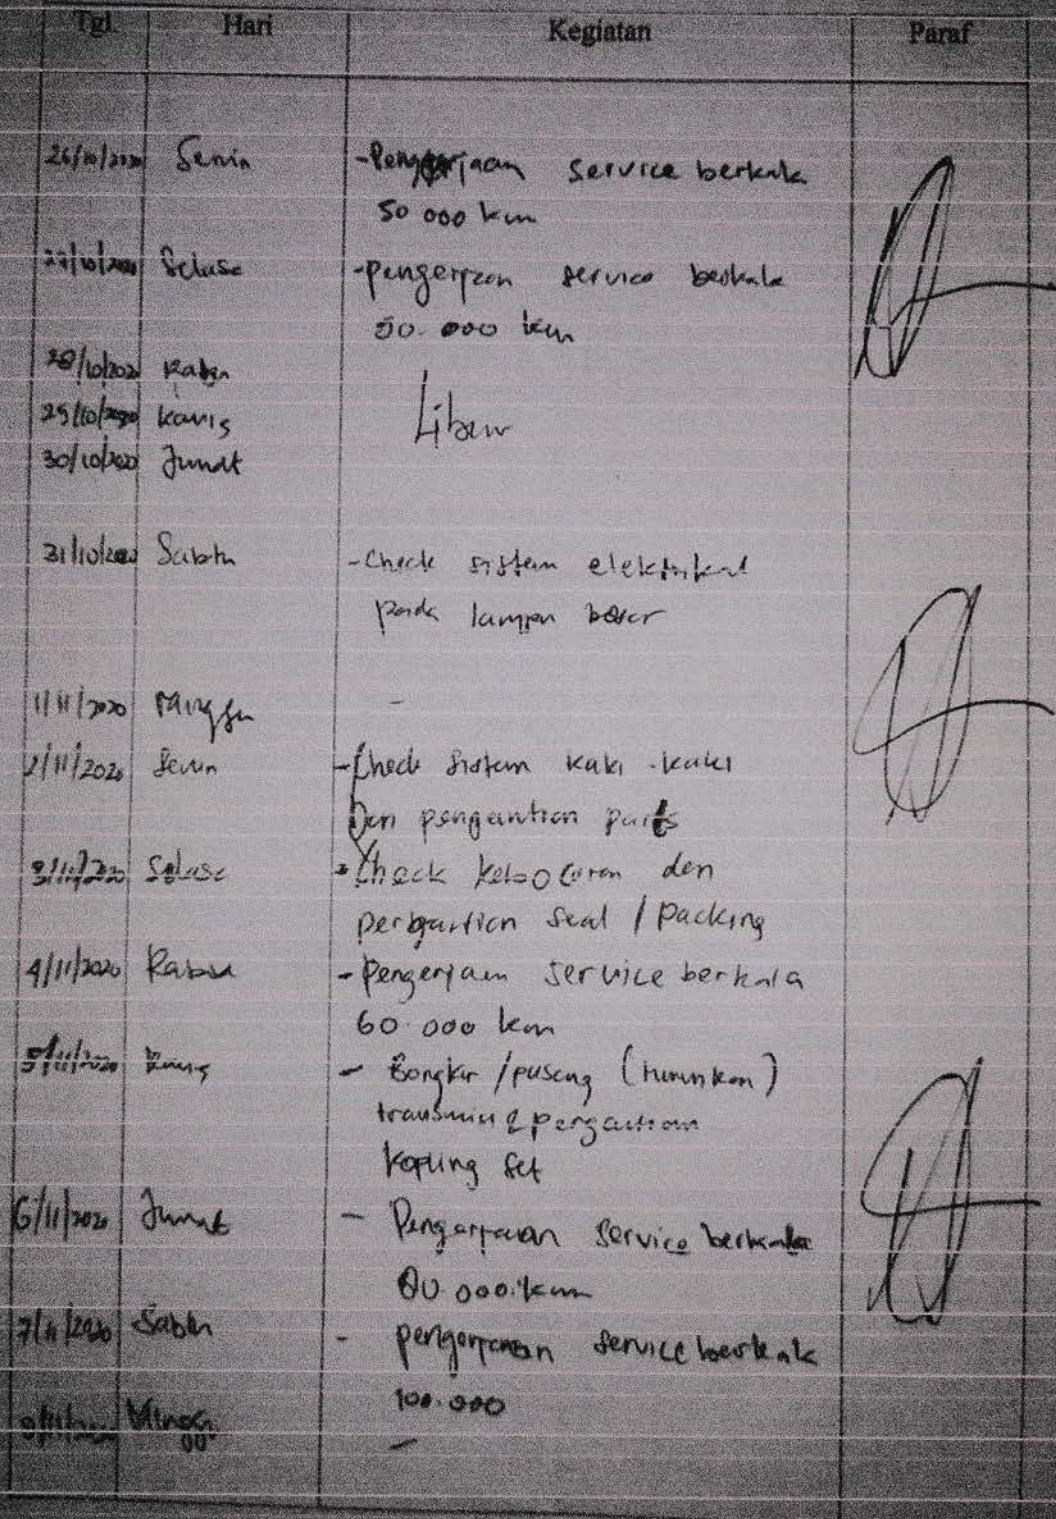 Tgl Hari Kegiatan Paraf
26/10/2020 Senin -Pengerjaan service berkala
50 000 km
27/10/2020 Selasa -pengerjaan service berkala
50.000 km
28/10/2020 Rabu
29/10/2020 Kamis Libur
30/10/2020 Jumat
31/10/2020 Sabtu -Check sistem elektrikal
pada lampu besar
1/11/2020 Minggu -
2/11/2020 Senin -Check sistem kaki-kaki
Dan pengantian parts
3/11/2020 Selasa -Check kebocoran dan
pergantian seal / packing
4/11/2020 Rabu -Pengerjaan service berkala
60.000 km
5/11/2020 Kamis - Bongkar /pasang (turunkan)
transmisi & pergantian
kopling set
6/11/2020 Jumat - Pengerjaan service berkala
000.km
7/11/2020 Sabtu - pengerjaan service berkala
100.000
Minggu -